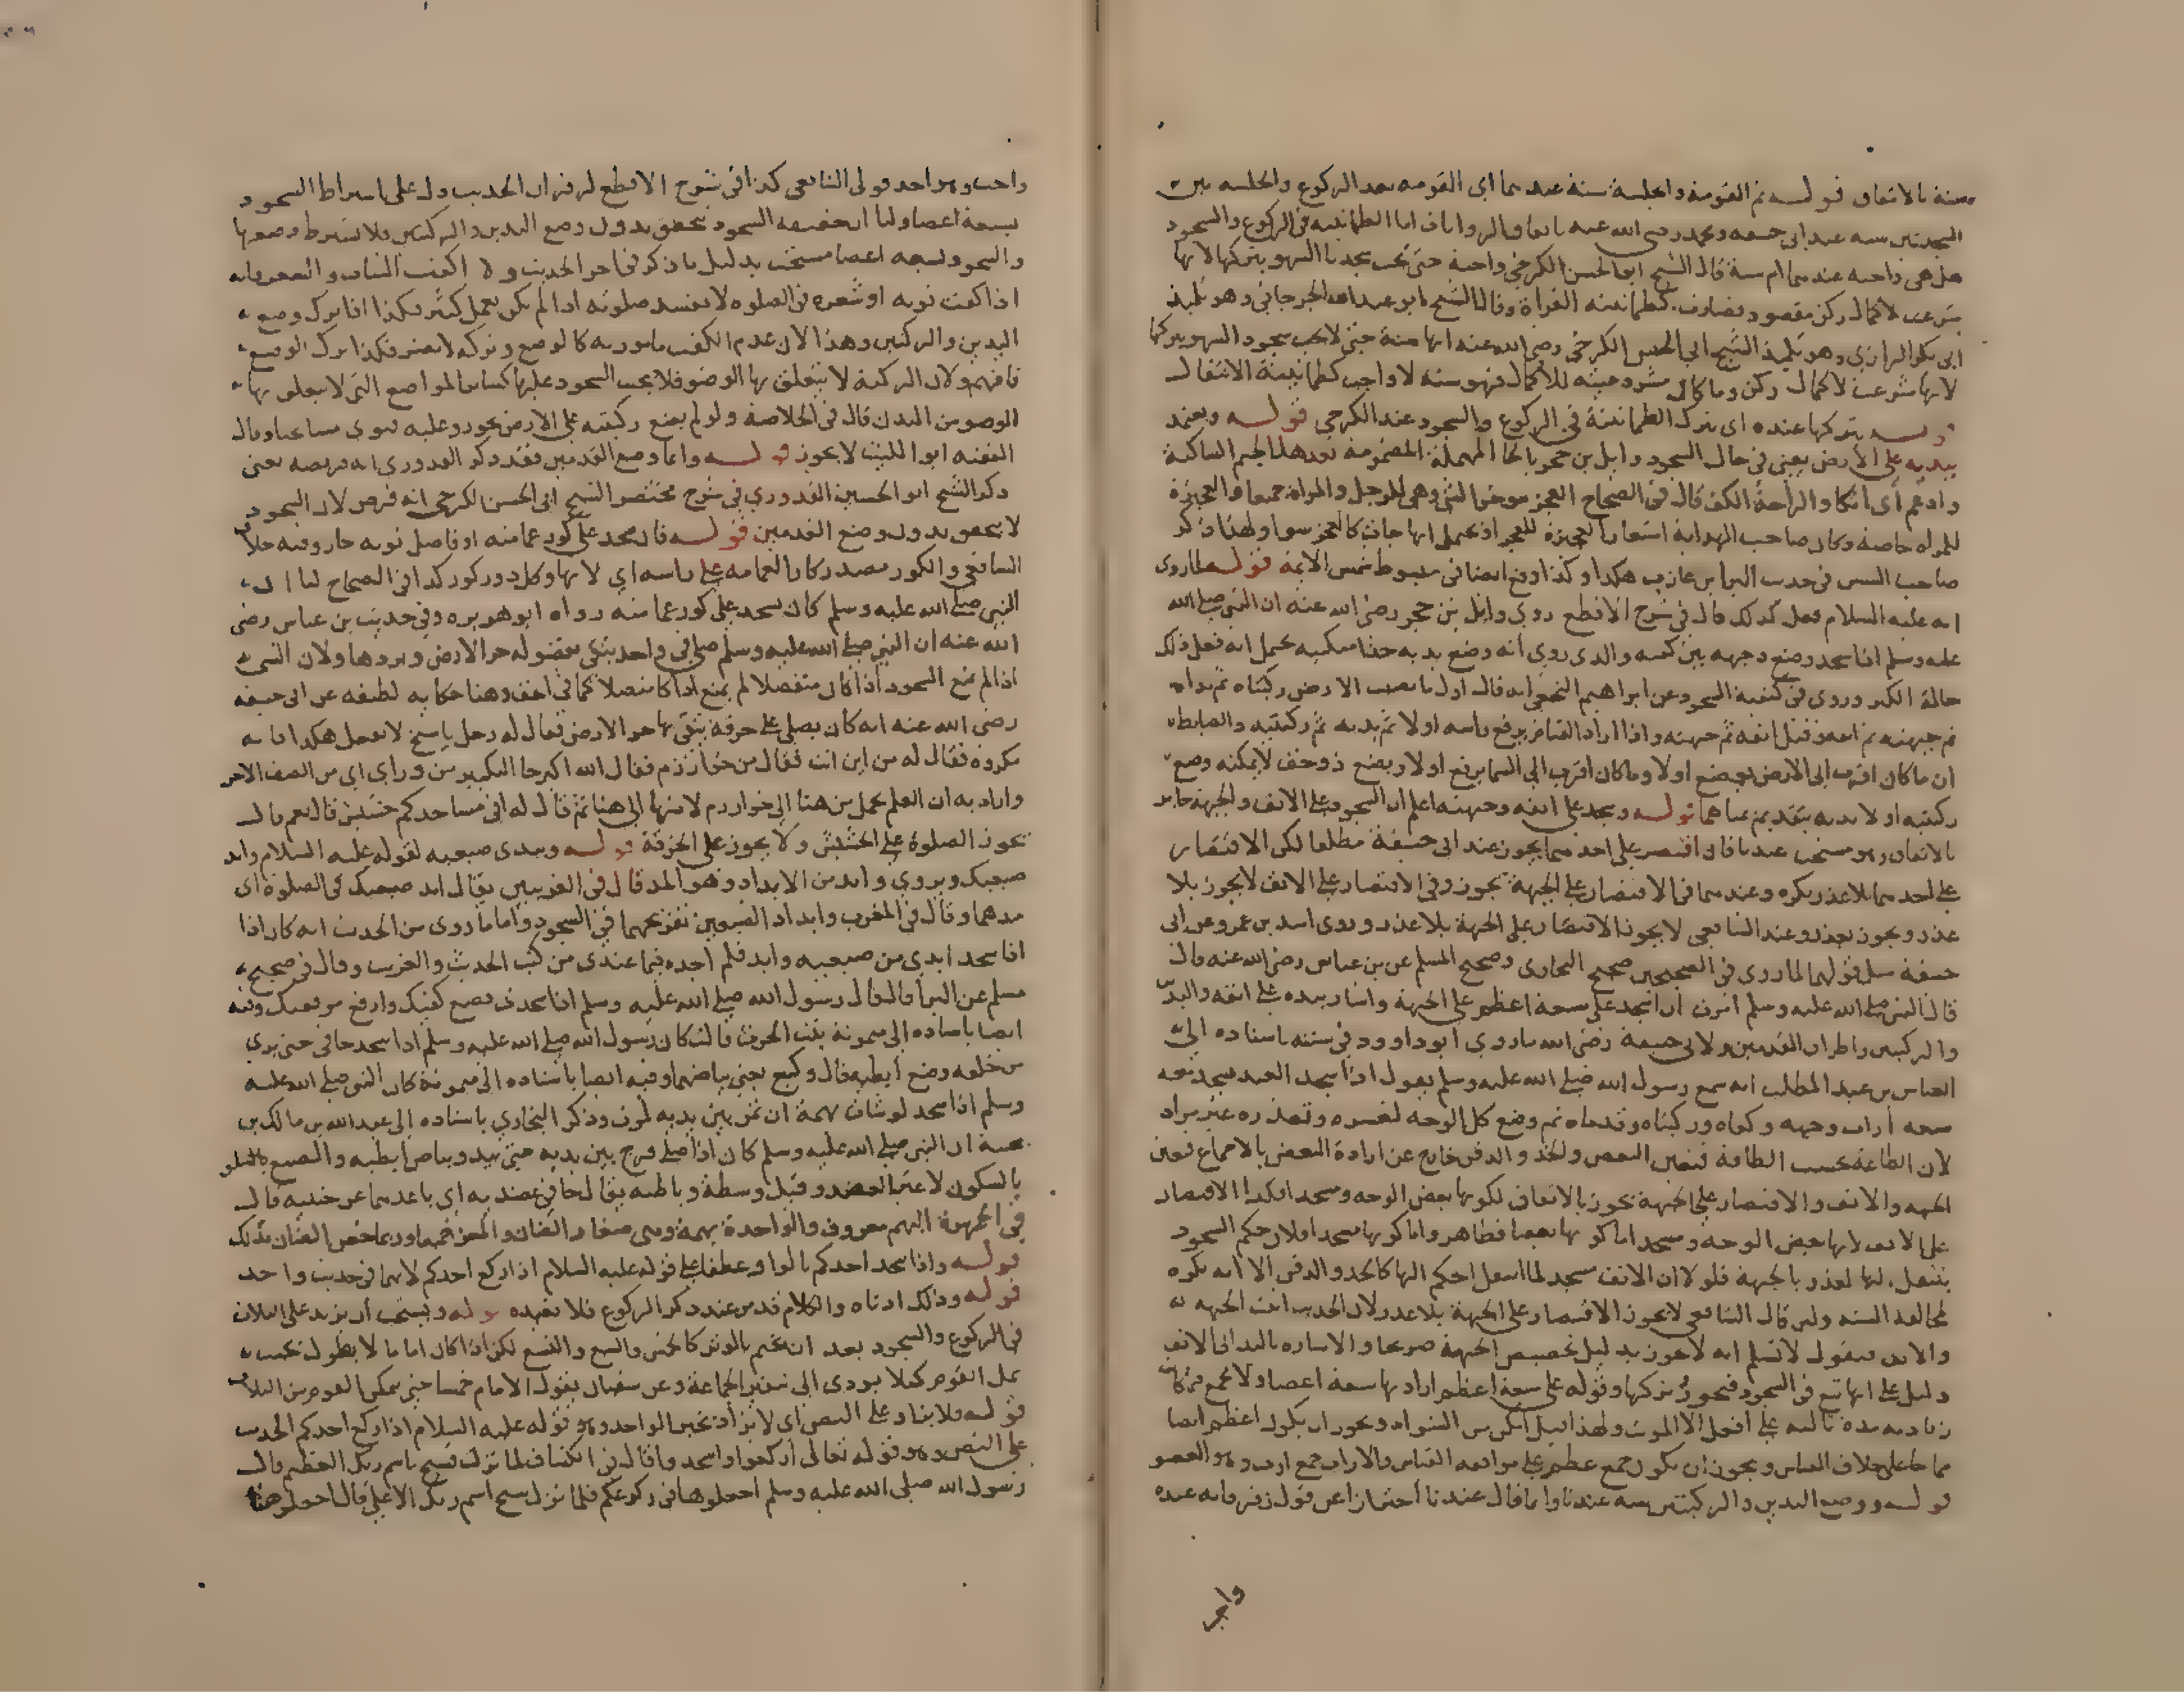 سنة بالاتفاق قوله ثم القومة والجلسة سنة عندهما اي القومه بعد الركوع والجلسه بين
السجدتين سنه عند ابي حنيفه ومحمد رضي الله عنه باتفاق الروايات اما الطمانينه في الركوع والسجود
هل هي واجبه عندهما ام سنة قال الشيخ ابو الحسن الكرخي واجبة حتى تجب سجدتا السهو بتركها لانها
شرعت لاكمال ركن مقصود فصارت كطمانينه القراة وقال الشيخ ابو عبد الله الجرجاني وهو تلميذ
ابي بكر الرازي وهو تلميذ الشيخ ابي الحسن الكرخي رضي الله عنه انها سنة حتى لا يجب سجود السهو بتركها
لانها شرعت لاكمال ركن وما كان مشروعيته للاكمال فهو سنه لا واجب كطمانينة الانتقال
قوله بتركها عنده اى بترك الطمانينة في الركوع والسجود عند الكرخي قوله ويعتمد
بيديه على الارض يعني في حال السجود وايل بن حجر بالحا المهملة المضمومة بعدها الجيم الساكنة
وادعم أى اتكا والراحة الكف قال في الصحاح العجز موخر الشي وهي للرجل والمراة جميعا والعجيزة
للمراه خاصة وكان صاحب الهداية استعار العجيزة للعجز او تحمل انها جات كالعجز سوا ولهذا ذكر
صاحب السنن في حديث البرا بن عازب هكذا وكذا وقع ايضا في مبسوط شمس الايمة قوله لما روى
انه عليه السلام فعل كذلك قال في شرح الاقطع روى وايل بن حجر رضي الله عنه ان النبي صلى الله
عليه وسلم اذا سجد وضع وجهه بين كفيه والذى روى أنه وضع يديه حذا منكبيه يحمل انه فعل ذلك
حالة الكبر وروى في كيفية السجود عن ابراهيم النخعي انه قال اول ما يصيب الارض ركبتاه ثم يداه
ثم جبهته ثم انفه وقيل انفه ثم جبهته واذا اراد القيام يرفع راسه اولا ثم يديه ثم ركبتيه والضابطه
ان ما كان اقرب الى الارض يوضع اولا وما كان اقرب الى السما يرفع اولا ويضع ذو خف لا يمكنه وضع
ركبتيه اولا يديه بتقديم يمناهما قوله وسجد على انفه وجبهته اعلم ان السجود على الانف والجبهة جايز
بالاتفاق وهو مستحب عندنا فان اقتصر على احدهما يجوز عند ابي حنيفة مطلقا لكن الاقتصار
على احدهما بلا عذر يكره وعندهما في الاقتصار على الجبهة يجوز وفي الاقتصار على الانف لا يجوز بلا
عذر ويجوز بعذر وعند الشافعي لا يجوز الاقتصار على الجبهة بلا عذر وروى اسد بن عمرو عن ابى
حنيفة مثل قولهما لما روى في الصحيحين صحيح البخارى وصحيح المسلم عن بن عباس رضي الله عنه قال
قال النبي صلى الله عليه وسلم امرت ان اسجد على سبعة اعظم على الجبهة واشار بيده على انفه واليدين
والركبتين واطراف القدمين ولابي حنيفة رضي الله ما روى ابو داوود في سننه باسناده الى
العباس بن عبد المطلب انه سمع رسول الله صلى الله عليه وسلم يقول اذا سجد العبد سجد معه
سبعه اراب وجهه وكفاه وركبتاه وقدماه ثم وضع كل الوجه لعسره وتعذره غير مراد
لان الطاعة بحسب الطاقة فتعين البعض والخد والذقن خارج عن ارادة البعض بالاجماع فتعين
الجبهه والانف والاقتصار على الجبهة يجوز بالاتفاق لكونها بعض الوجه ومسجدا فكذا الاقتصار
على الانف لانها بعض الوجه ومسجد اما كونها بعضا فظاهر واما كونها مسجدا فلان حكم السجود
ينتقل اليها لعذر بالجبهة فلولا ان الانف مسجد لما انتقل الحكم اليها كالخد والذقن الا انه يكره
لمخالفة السنه ولين قال الشافعي لا يجوز الاقتصار على الجبهة بلا عذر لان الحديث اثبت الجبهه
والانف فنقول لا نسلم انه لا يجوز بدليل تخصيص الجبهة صريحا والاشاره باليد الى الانف
دليل على انها تبع في السجود فيجوز تركها وقوله على سبعة اعظم اراد بها سبعة اعضا ولا تجمع
زياديه مدة ثالثه على افعل الا المونث ولهذا قيل
مما جا على خلاف القياس ويجوز ان يكون جمع عظم على موافقه القياس والاراب جمع ارب وهو العضو
قوله ووضع اليدين والركبتين سنه عندنا وانما قال عندنا احترازا عن قول زفر فانه عنده
واجب
واجب وهو احد قولى الشافعى كذا في شرح الاقطع لزفر ان الحديث دل على اشتراط السجود
بسبعة اعضا ولنا ان حقيقه السجود تتحقق بدون وضع اليدين والركبتين فلا تشترط وضعها
والسجود لسبعه اعضا مستحب بدليل ما ذكر في اخر الحديث ولا اكفت الثياب والشعر فانه
اذا كفت ثوبه او شعره في الصلوه لا تفسد صلوته اذا لم يكن بعمل كثير فكذا اذا ترك وضع
اليدين والركبتين وهذا لان عدم الكفت مامور به كالوضع وتركه لا يضر فكذا ترك الوضع
فافهم ولان الركبة لا يتعلق بها الوضو فلا يجب السجود عليها كساير المواضع التي لا يتعلق بها
الوضو من البدن قال في الخلاصة ولو لم يضع ركبتيه على الارض يجوز وعليه فتوى مشايخنا وقال
الفقيه ابو الليث لا يجوز قوله واما وضع القدمين فقد ذكر القدورى انه فريضه يعنى
ذكر الشيخ ابو الحسين القدوري في شرح مختصر الشيخ ابي الحسن الكرخى انه فرض لان السجود
لا يتحقق بدون وضع القدمين قوله فان سجد على كور عمامته او فاضل ثوبه جاز وفيه خلاف
الشافعي والكور مصدر كار العمامه على راسه اي لاثها وكل دور كور كذا في الصحاح لنا ان
النبي صلى الله عليه وسلم كان يسجد على كور عمامته رواه ابو هريره وفي حديث بن عباس رضى
الله عنه ان النبي صلى الله عليه وسلم صلى في ثوب واحد يتقي بفضوله حر الارض وبردها ولان الشى
اذا لم يمنع السجود اذا كان منفصلا لم يمنع اذا كان متصلا كما في الخف وهنا حكايه لطيفه عن ابى حنيفه
رضى الله عنه انه كان يصلى على خرقة يتقى بها حر الارض فقال له رجل يا شيخ لا تفعل هكذا فانه
مكروه فقال له من اين انت فقال من خوارزم فقال الله اكبر جا التكبير من وراى اى من الصف الاخر
واراد به ان العلم يحمل من هنا الى خوارزم لا منها الى هنا ثم قال له افى مساجدكم حشيش قال نعم قال
تجوز الصلوة على الحشيش ولا يجوز على الخرقة قوله ويبدى ضبعيه لقوله عليه السلام وابد
ضبعيك ويروى وابد من الابداد وهو المد قال في الغريبين يقال ابد ضبعيك في الصلوة اى
مدهما وقال في المغرب وابداد الضبعين تفريجهما في السجود واما ما روى من الحديث انه كان اذا
اذا سجد ابدى من ضبعيه وابد فلم اجده فيما عندى من كتب الحديث والغريب وقال في صحيح
مسلم عن البرا قال قال رسول الله صلى الله عليه وسلم اذا سجدت فضع كفيك وارفع مرفقيك وفيه
ايضا باسناده الى ميمونة بنت الحرث قالت كان رسول الله صلى الله عليه وسلم اذا سجد جافى حتى يرى
من خلفه وضح ابطيه قال وكيع يعني بياضهما وفيه ايضا باسناده الى ميمونة كان النبي صلى الله عليه
وسلم اذا سجد لو شات بهمة ان تمر بين يديه لمرت وذكر البخاري باسناده الى عبد الله بن مالك بن
بحينة ان النبي صلى الله عليه وسلم كان اذا صلى فرج بين يديه حتى يبدو بياض ابطيه والضبع
بالسكون لا غير العضد وقيل وسطه وباطنه يقال جافى عضديه اي باعدهما عن جنبيه قال
في الجمهرة البهم معروف والواحدة بهمة وهى صغار الضان والمعز جميعا وربما خص الضان بذلك
قوله واذا سجد احدكم بالواو عطفا على قوله عليه السلام اذا ركع احدكم لانهما في حديث واحد
قوله وذلك ادناه والكلام قد مر عند ذكر الركوع فلا نعيده قوله ويستحب أن يزيد على الثلاث
في الركوع والسجود بعد ان يختم بالوتر كالخمس والسبع والتسع لكن اذا كان اماما لا يطول بحيث
يمل القوم كيلا يودى الى تنفير الجماعة وعن سفيان يقول الامام خمسا حتى يتمكن القوم من الثلاث
قوله فلا يزاد على النص اي لا يزاد بخبر الواحد وهو قوله عليه السلام اذا ركع احدكم الحديث
على النص وهو قوله تعالى اركعوا واسجدوا قال في الكشاف لما نزلت فسبح باسم ربك العظيم قال
رسول الله صلى الله عليه وسلم اجعلوها في ركوعكم فلما نزل سبح اسم ربك الاعلى قال اجعلوها